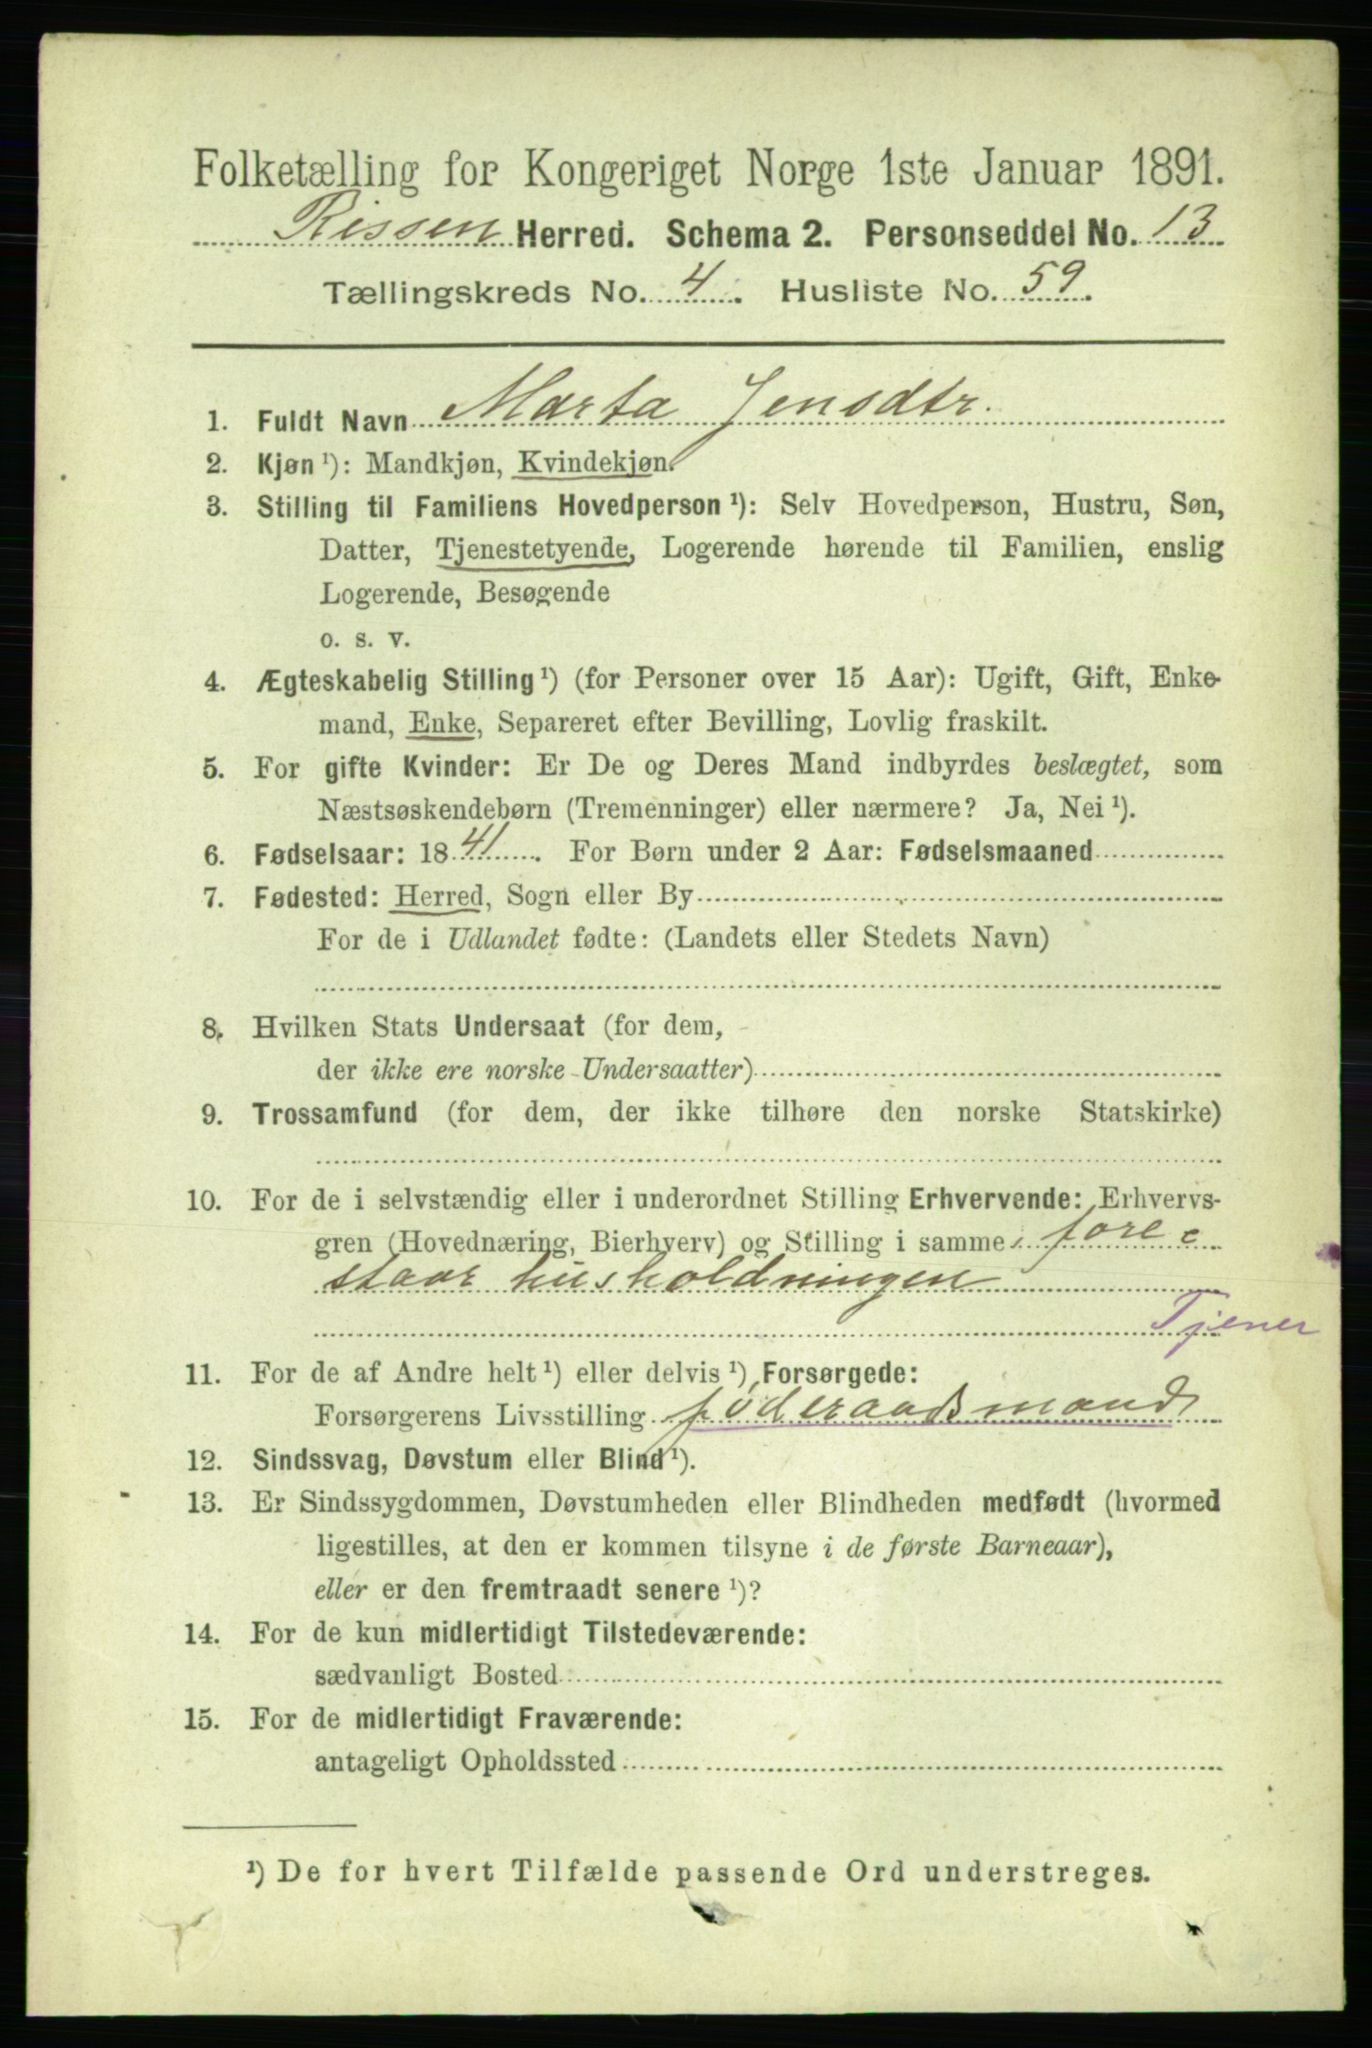 Folketælling for Kongeriget Norge 1ste Januar 1891.
Rissen Herred. Schema 2. Personseddel No. 13
Tællingskreds No. 4. Husliste No. 59.
1. Fuldt Navn Marta Jensdtr.
2. Kjøn ¹): Mandkjøn, Kvindekjøn.
3. Stilling til Familiens Hovedperson ¹): Selv Hovedperson, Hustru, Søn,
Datter, Tjenestetyende, Logerende hørende til Familien, enslig
Logerende, Besøgende
o. s. v.
4. Ægteskabelig Stilling ¹) (for Personer over 15 Aar): Ugift, Gift, Enke-
mand, Enke, Separeret efter Bevilling, Lovlig fraskilt.
5. For gifte Kvinder: Er De og Deres Mand indbyrdes beslægtet, som
Næstsøskendebørn (Tremenninger) eller nærmere? Ja, Nei ¹).
6. Fødselsaar: 1841. For Børn under 2 Aar: Fødselsmaaned
7. Fødested: Herred, Sogn eller By
For de i Udlandet fødte: (Landets eller Stedets Navn)
8. Hvilken Stats Undersaat (for dem,
der ikke ere norske Undersaatter)
9. Trossamfund (for dem, der ikke tilhøre den norske Statskirke)
10. For de i selvstændig eller i underordnet Stilling Erhvervende: Erhvervs-
gren (Hovednæring, Bierhverv) og Stilling i samme fore=
staar husholdningen
Tjener
11. For de af Andre helt ¹) eller delvis ¹) Forsørgede:
Forsørgerens Livsstilling føderaadsmand
12. Sindssvag, Døvstum eller Blind ¹).
13. Er Sindssygdommen, Døvstumheden eller Blindheden medfødt (hvormed
ligestilles, at den er kommen tilsyne i de første Barneaar),
eller er den fremtraadt senere ¹)?
14. For de kun midlertidigt Tilstedeværende:
sædvanligt Bosted
15. For de midlertidigt Fraværende:
antageligt Opholdssted
¹) De for hvert Tilfælde passende Ord understreges.